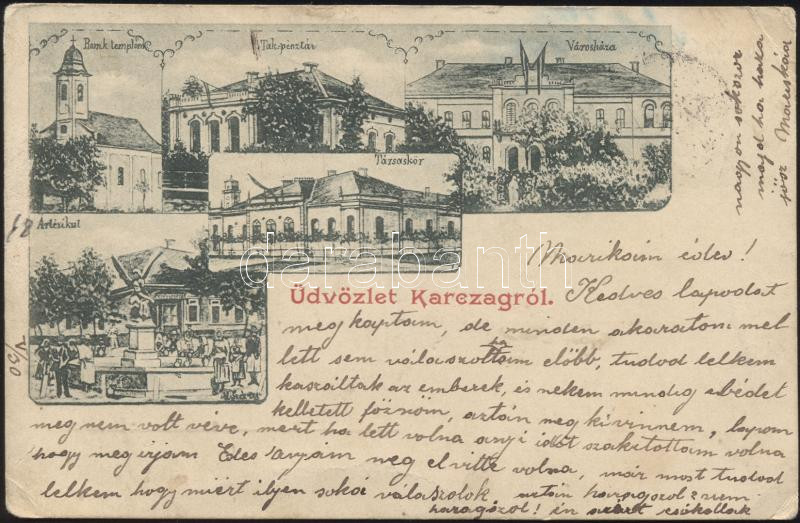 Bamk templom
Tak-pénztár
Városháza
Társaskör
Artézikut
Üdvözlet Karczagról.
darabanth
Marikám édes!
Kedves lapodat
megkaptam, de minden akaratom mel
lett sem válaszoltam előbb, tudod lelkem
kaszáltak az emberek, és nekem mindig ebédet
kelletett főznöm, aztán meg kivinnem, lapom
meg nem volt véve, mert ha lett volna anyi időt szakitottam volna
hogy meg irjam Édes anyám meg el vitte volna, már most tudod
lelkem hogy miért ilyen soká válaszolok aztán haragszol? nem
haragszol! én azért csókollak
nagyon sokszor
majd ha haza
jösz Mariskád